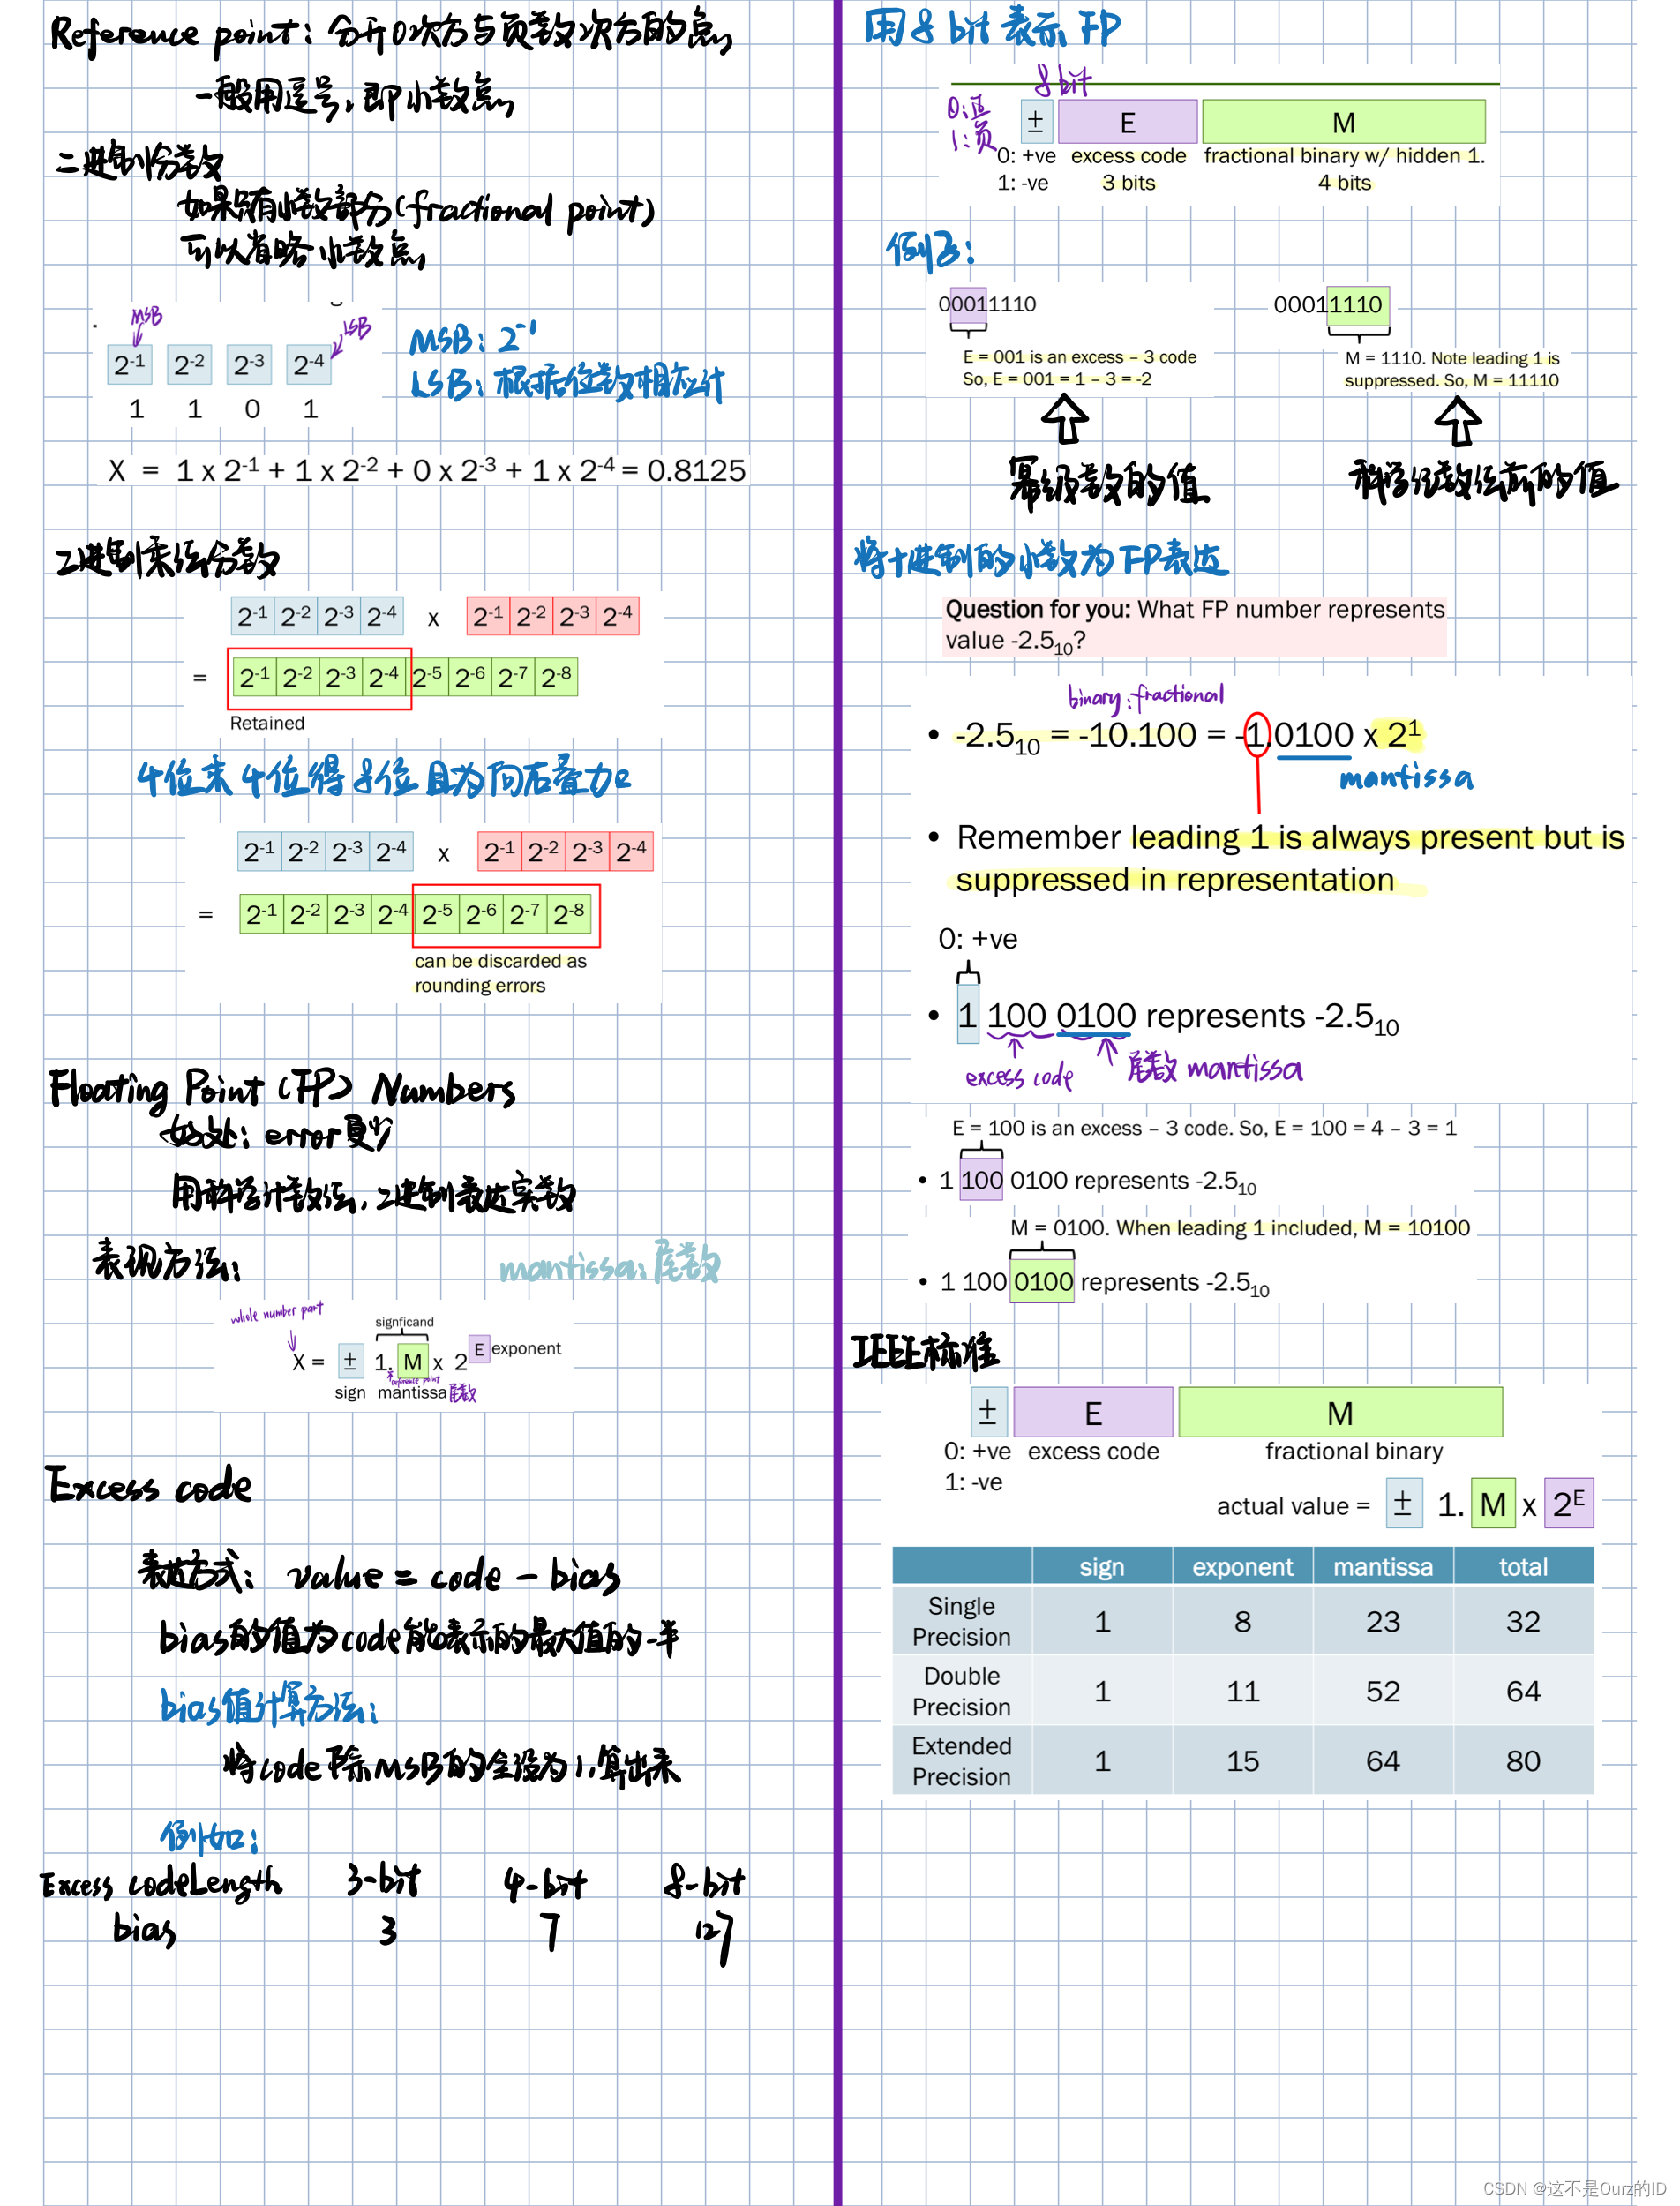 Reference point：分开0次方与负数次方的点
一般用逗号，即小数点
二进制分数
如果只有小数部分(fractional point)
可以省略小数点
MSB
LSB
2-1 2-2 2-3 2-4
1 1 0 1
MSB：2-1
LSB：根据位数相应计
X = 1 x 2-1 + 1 x 2-2 + 0 x 2-3 + 1 x 2-4 = 0.8125
二进制乘法分数
2-1 2-2 2-3 2-4 x 2-1 2-2 2-3 2-4
= 2-1 2-2 2-3 2-4 2-5 2-6 2-7 2-8
Retained
4位乘4位得8位且为向右叠加
2-1 2-2 2-3 2-4 x 2-1 2-2 2-3 2-4
= 2-1 2-2 2-3 2-4 2-5 2-6 2-7 2-8
can be discarded as
rounding errors
Floating Point (FP) Numbers
好处：error更少
用科学计数法，二进制表达实数
表现方法：
mantissa：尾数
whole number part
signficand
X = ± 1. M x 2 E exponent
reference point
sign mantissa 尾数
Excess code
表达方式：value = code - bias
bias的值为code能表示的最大值的一半
bias值计算方法：
将code除MSB的全设为1，算出来
例如：
Excess codeLength 3-bit 4-bit 8-bit
bias 3 7 127
用8 bit 表示 FP
8 bit
0：正
1：负
± E M
0: +ve excess code fractional binary w/ hidden 1.
1: -ve 3 bits 4 bits
例子：
00011110 00011110
E = 001 is an excess – 3 code
So, E = 001 = 1 – 3 = -2
M = 1110. Note leading 1 is
suppressed. So, M = 11110
幂级数的值 科学记数法前的值
将十进制的小数为FP表达
Question for you: What FP number represents
value -2.510?
binary：fractional
• -2.510 = -10.100 = -1.0100 x 21
mantissa
• Remember leading 1 is always present but is
suppressed in representation
0: +ve
• 1 100 0100 represents -2.510
excess code 尾数 mantissa
E = 100 is an excess – 3 code. So, E = 100 = 4 – 3 = 1
• 1 100 0100 represents -2.510
M = 0100. When leading 1 included, M = 10100
• 1 100 0100 represents -2.510
IEEE标准
± E M
0: +ve excess code fractional binary
1: -ve
actual value = ± 1. M x 2E
sign exponent mantissa total
Single
Precision 1 8 23 32
Double
Precision 1 11 52 64
Extended
Precision 1 15 64 80
CSDN @这不是Ourz的ID